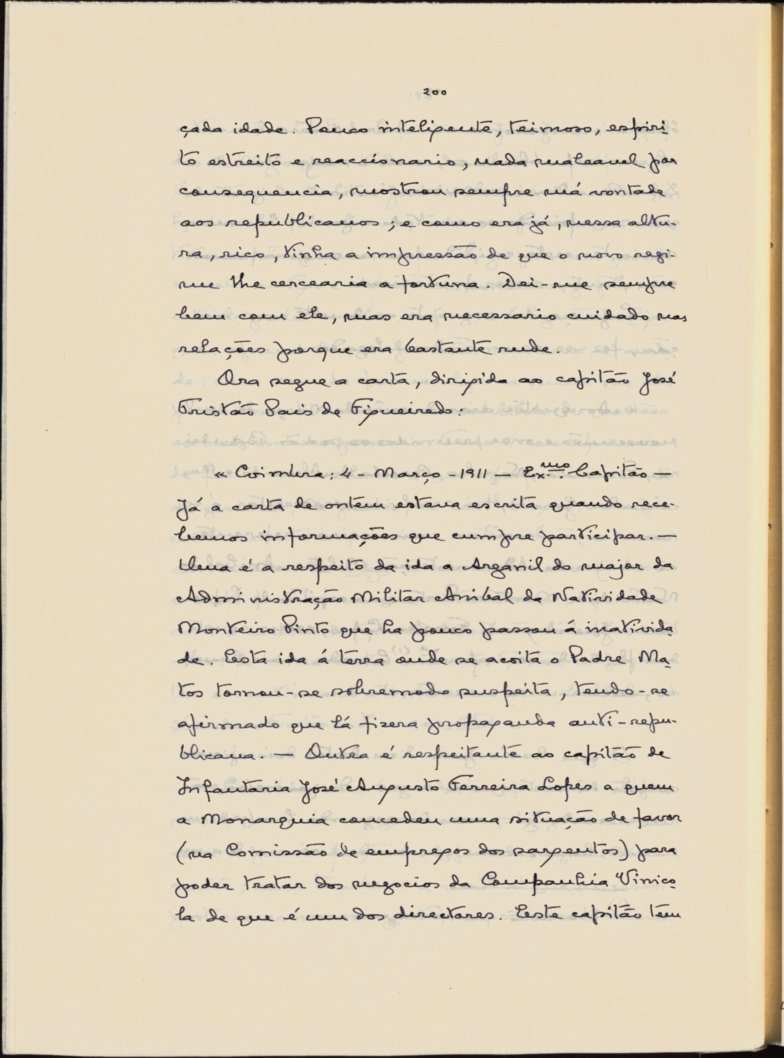 200
çada idade. Pouco inteligente, teimoso, espiri-
to estreito e reaccionario, nada maleavel por
consequencia, mostrou sempre má vontade
aos republicanos; e como era já, nessa altu-
ra, rico, tinha a impressão de que o novo regi-
me lhe cercearia a fortuna. Dei-me sempre
bem com ele, mas era necessario cuidado nas
relações porque era bastante rude.
Ora segue a carta, dirigida ao capitão José
Tristão Pais de Figueiredo:
« Coimbra: 4 - Março - 1911 — Ex.mo Capitão —
Já a carta de ontem estava escrita quando rece-
bemos informações que cumpre participar. —
Uma é a respeito da ida a Arganil do major da
Administração Militar Anibal da Natividade
Monteiro Pinto que ha pouco passou á inativida-
de. Esta ida á terra onde se acoita o Padre Ma-
tos tornou-se sobremodo suspeita, tendo-se
afirmado que lá fizera propaganda anti-repu-
blicana. — Outra é respeitante ao capitão de
Infantaria José Augusto Ferreira Lopes a quem
a Monarquia concedeu uma situação de favor
(na Comissão de empregos dos sargentos) para
poder tratar dos negocios da Companhia Vinico-
la de que é um dos directores. Este capitão tem